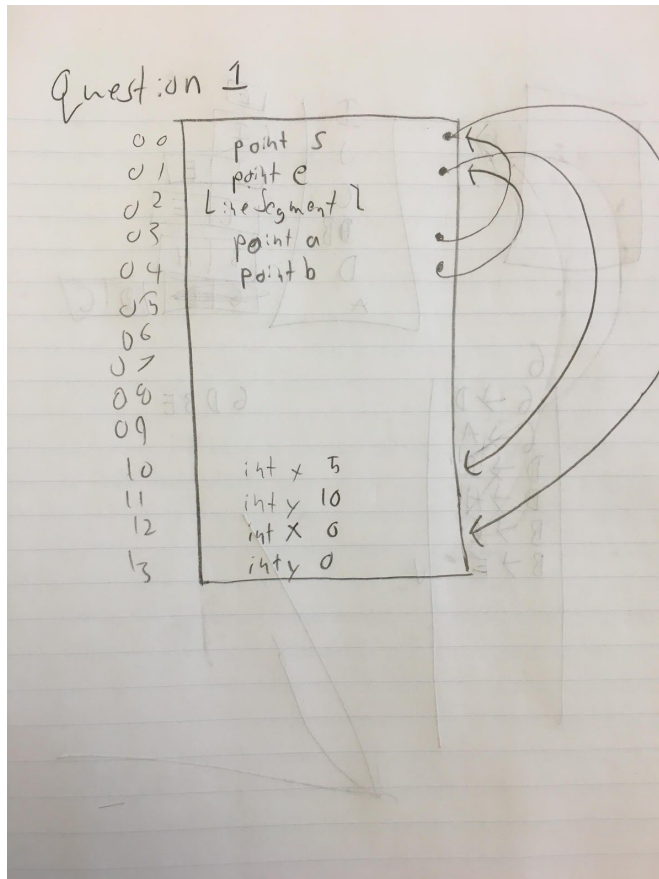 Question 1
00 point s
01 point e
02 LineSegment l
03 point a
04 point b
05
06
07
08
09
10 int x 5
11 int y 10
12 int x 0
13 int y 0